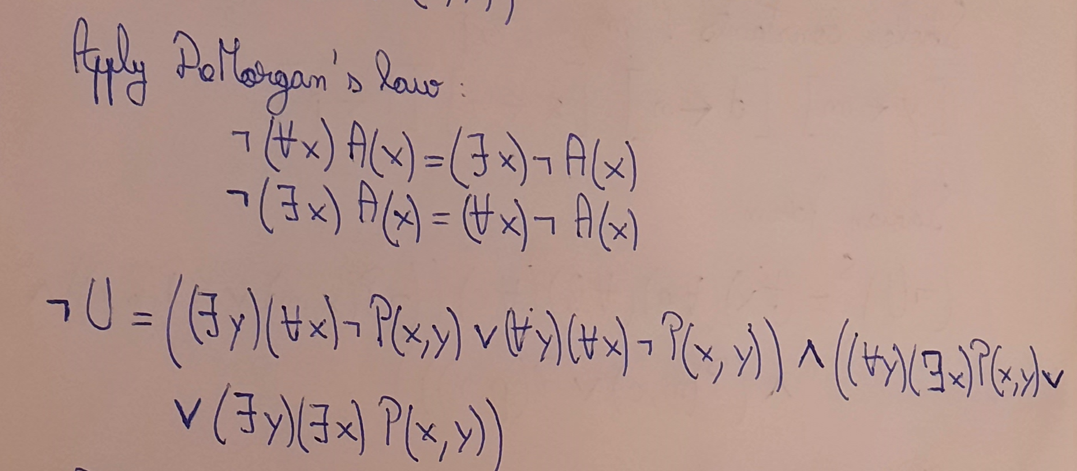 Apply DeMorgan's law:
¬(∀x) A(x) = (∃x) ¬ A(x)
¬(∃x) A(x) = (∀x) ¬ A(x)
¬U = ((∃y)(∀x) ¬ P(x,y) ∨ (∀y)(∀x) ¬ P(x,y)) ∧ ((∀y)(∃x) P(x,y) ∨
∨ (∃y)(∃x) P(x,y))